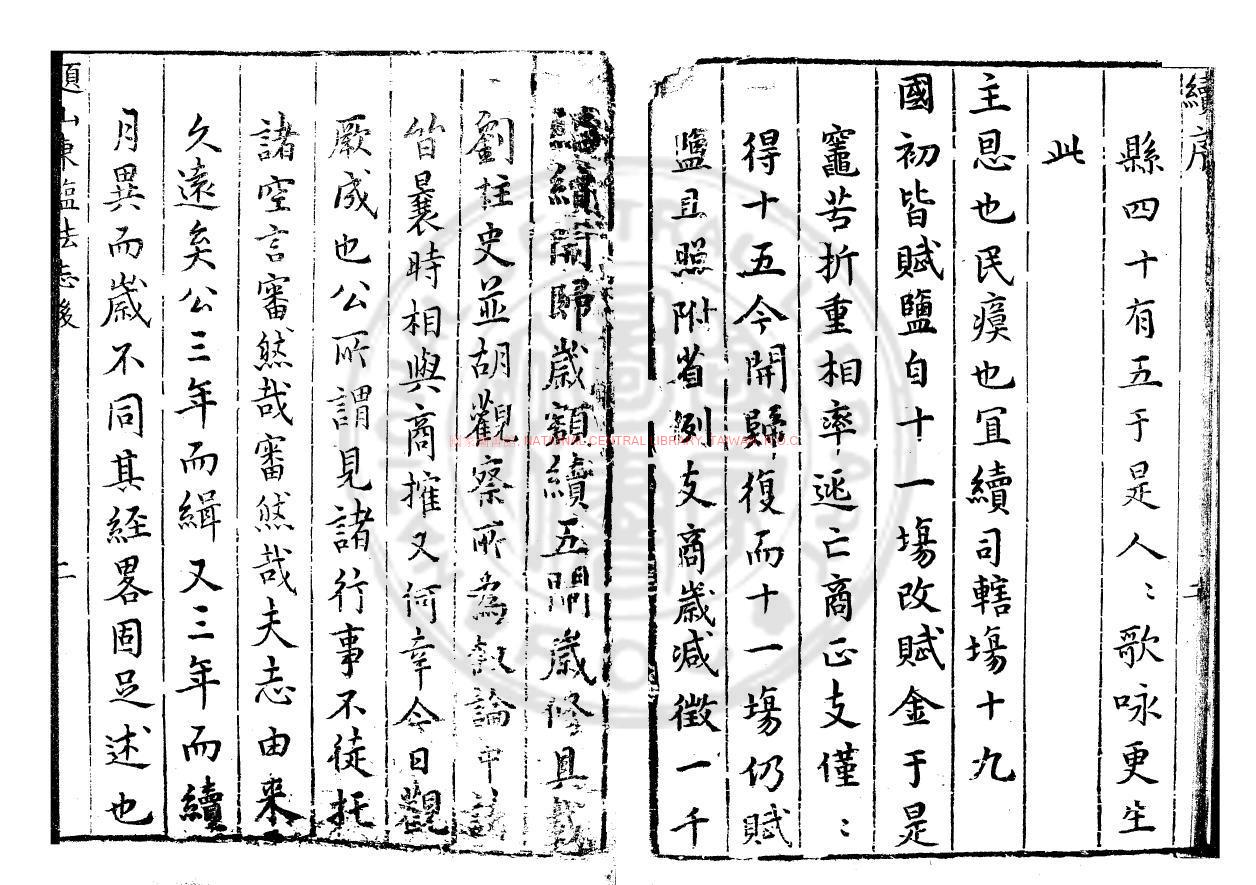 續序
縣四十有五于是人〻歌咏更生
此
主恩也民瘼也宜續司轄場十九
國初皆賦鹽自十一場改賦金于是
竈苦折重相率逃亡商正支僅〻
得十五今開歸復而十一場仍賦
鹽且照附省例支商歲減徵一千
續開歸歲額續五開歲修具載
劉柱史並胡觀察所為敘論中
皆曩時相與商搉又何幸今日觀
厥成也公所謂見諸行事不徒托
諸空言審然哉審然哉夫志由来
久遠矣公三年而緝又三年而續
月異而歲不同其經畧固足述也
題山東鹽法志後
二
國家圖書館 NATIONAL CENTRAL LIBRARY, TAIWAN, R.O.C.